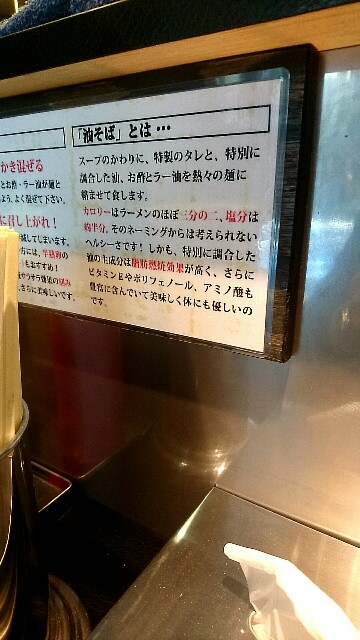 「油そば」とは…
スープのかわりに、特製のタレと、特別に
調合した油、お酢とラー油を熱々の麺に
絡ませて食します。
カロリーはラーメンのほぼ三分の二、塩分は
約半分。そのネーミングからは考えられない
ヘルシーさです！しかも、特別に調合した
油の主成分は脂肪燃焼効果が高く、さらに
ビタミンEやポリフェノール、アミノ酸も
豊富に含んでいて美味しく体にも優しいの
です。
かき混ぜる
とお酢・ラー油が麺と
よう、よく混ぜて下さい。
に召し上がれ！
減してしまいます。
方には、半熟卵の
もおすすめ！
さらに美味しいです。